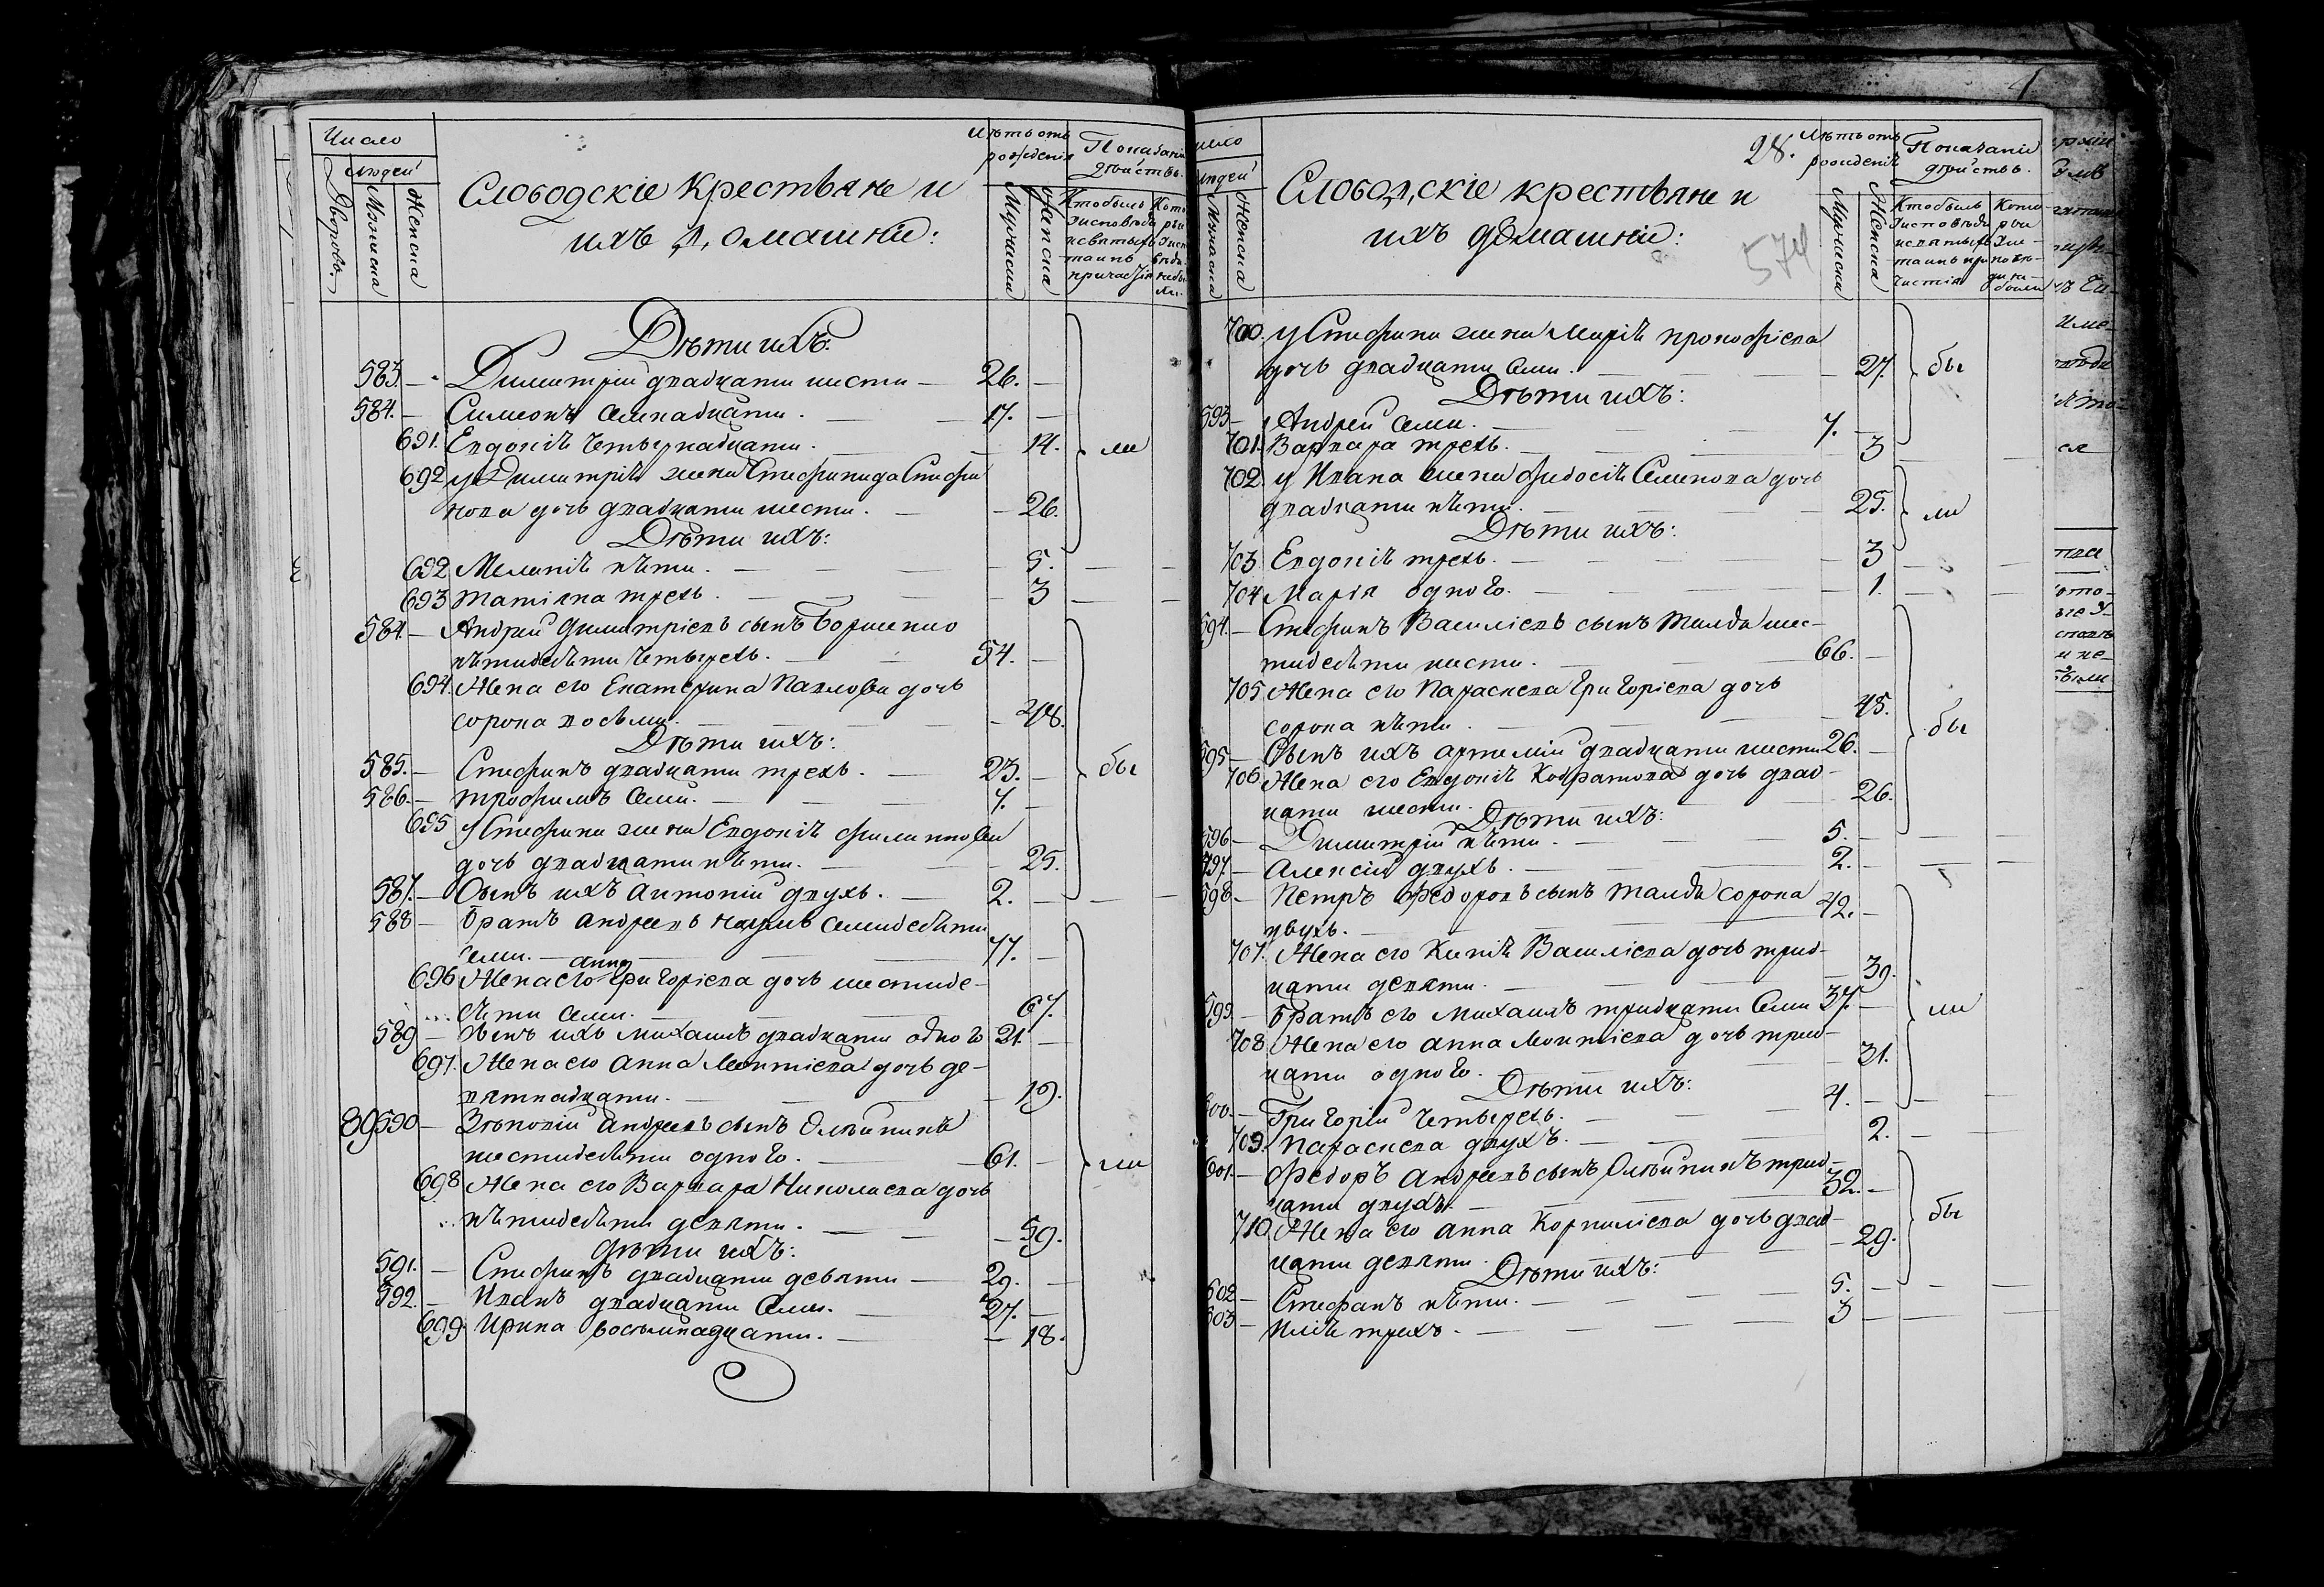 Число
людей
Дворовъ.
Мужеска
Женска
Слободскіе крестьяне и
ихъ домашніе:
Лѣтъ отъ
рожденія
Мужески
Женска
Показаніе
дѣйствъ.
Кто былъ
Дѣти ихъ:
583. — Димитрій двадцати шести — 26. —
584. — Симеонъ семнадцати. — 17. —
691. Евдокія четырнадцати. — 14.
692 у Димитрія жена Степанида Стефа
нова дочь двадцати шести. — 26.
Дѣти ихъ:
692 Меланія пяти. — 5.
693 Татіяна трехъ. — 3
584. — Андрей Димитріевъ сынъ
пятидесяти четырехъ. — 54. —
694. Жена его Екатерина Павлова дочь
сорока восьми. — 48.
Дѣти ихъ:
585. — Стефанъ двадцати трехъ. — 23. —
586. — Трофимъ семи. — 7. —
695 у Стефана жена Евдокія Филиппова
дочь двадцати пяти. — 25.
587. — Сынъ ихъ Антоній двухъ. — 2. —
588 — Братъ Андреевъ Наумъ семидесяти
семи. — 77. —
Анна
696 Жена его Григоріева дочь шестиде-
сяти семи. — 67.
589 — Сынъ ихъ Михаилъ двадцати одного 21. —
697. Жена его Анна Моѵсіева дочь де-
вятнадцати. — 19.
89 590 — Зѣновій Андреевъ сынъ
шестидесяти одного. — 61. —
698 Жена его Варвара Николаева дочь
пятидесяти девяти. — 59.
Дѣти ихъ:
591. — Стефанъ двадцати девяти — 29. —
592. — Иванъ двадцати семи. — 27. —
699. Ирина восьмнадцати. — 18.
ли
бы
ли
число
людей
Мужеска
Женска
Слободскіе крестьяне и
ихъ домашніе:
28.
574
Лѣтъ отъ
рожденія
Мужески
Женска
Показаніе
дѣйствъ.
Кто былъ
700. у Стефана жена Марія Прокофіева
дочь двадцати семи. — 27. бы
Дѣти ихъ:
593 — Андрей семи. — 7. —
701. Варвара трехъ. — 3
702. у Ивана жена Феодосія Семенова дочь
двадцати пяти. — 25. ли
Дѣти ихъ:
703 Евдокія трехъ. — 3
704 Марія одного. — 1.
594. — Стефанъ Василіевъ сынъ шес-
тидесяти шести. — 66. —
705 Жена его Параскева Григоріева дочь
сорока пяти. — 45. бы
595 — Сынъ ихъ Артемій двадцати шести 26. —
706 Жена его Евдокія Кодратова дочь двад-
цати шести. — 26.
Дѣти ихъ:
596 — Димитрій пяти. — 5. —
597. — Алексій двухъ. — 2. —
598 — Петръ Федоровъ сынъ сорока
двухъ. — 42. —
707. Жена его Василіева дочь трид-
цати девяти. — 39.
599 — Братъ его Михаилъ тридцати семи 37. — ли
708 Жена его Анна Моѵсіева дочь трид-
цати одного. — 31.
Дѣти ихъ:
600. — Григорій четырехъ. — 4. —
709. Параскева двухъ. — 2.
601. — Федоръ Андреевъ сынъ трид-
цати двухъ. — 32. —
710 Жена его Анна Корниліева дочь двад-
цати девяти. — 29. бы
Дѣти ихъ:
602 — Стефанъ пяти. — 5. —
603 — Илія трехъ. — 3 —